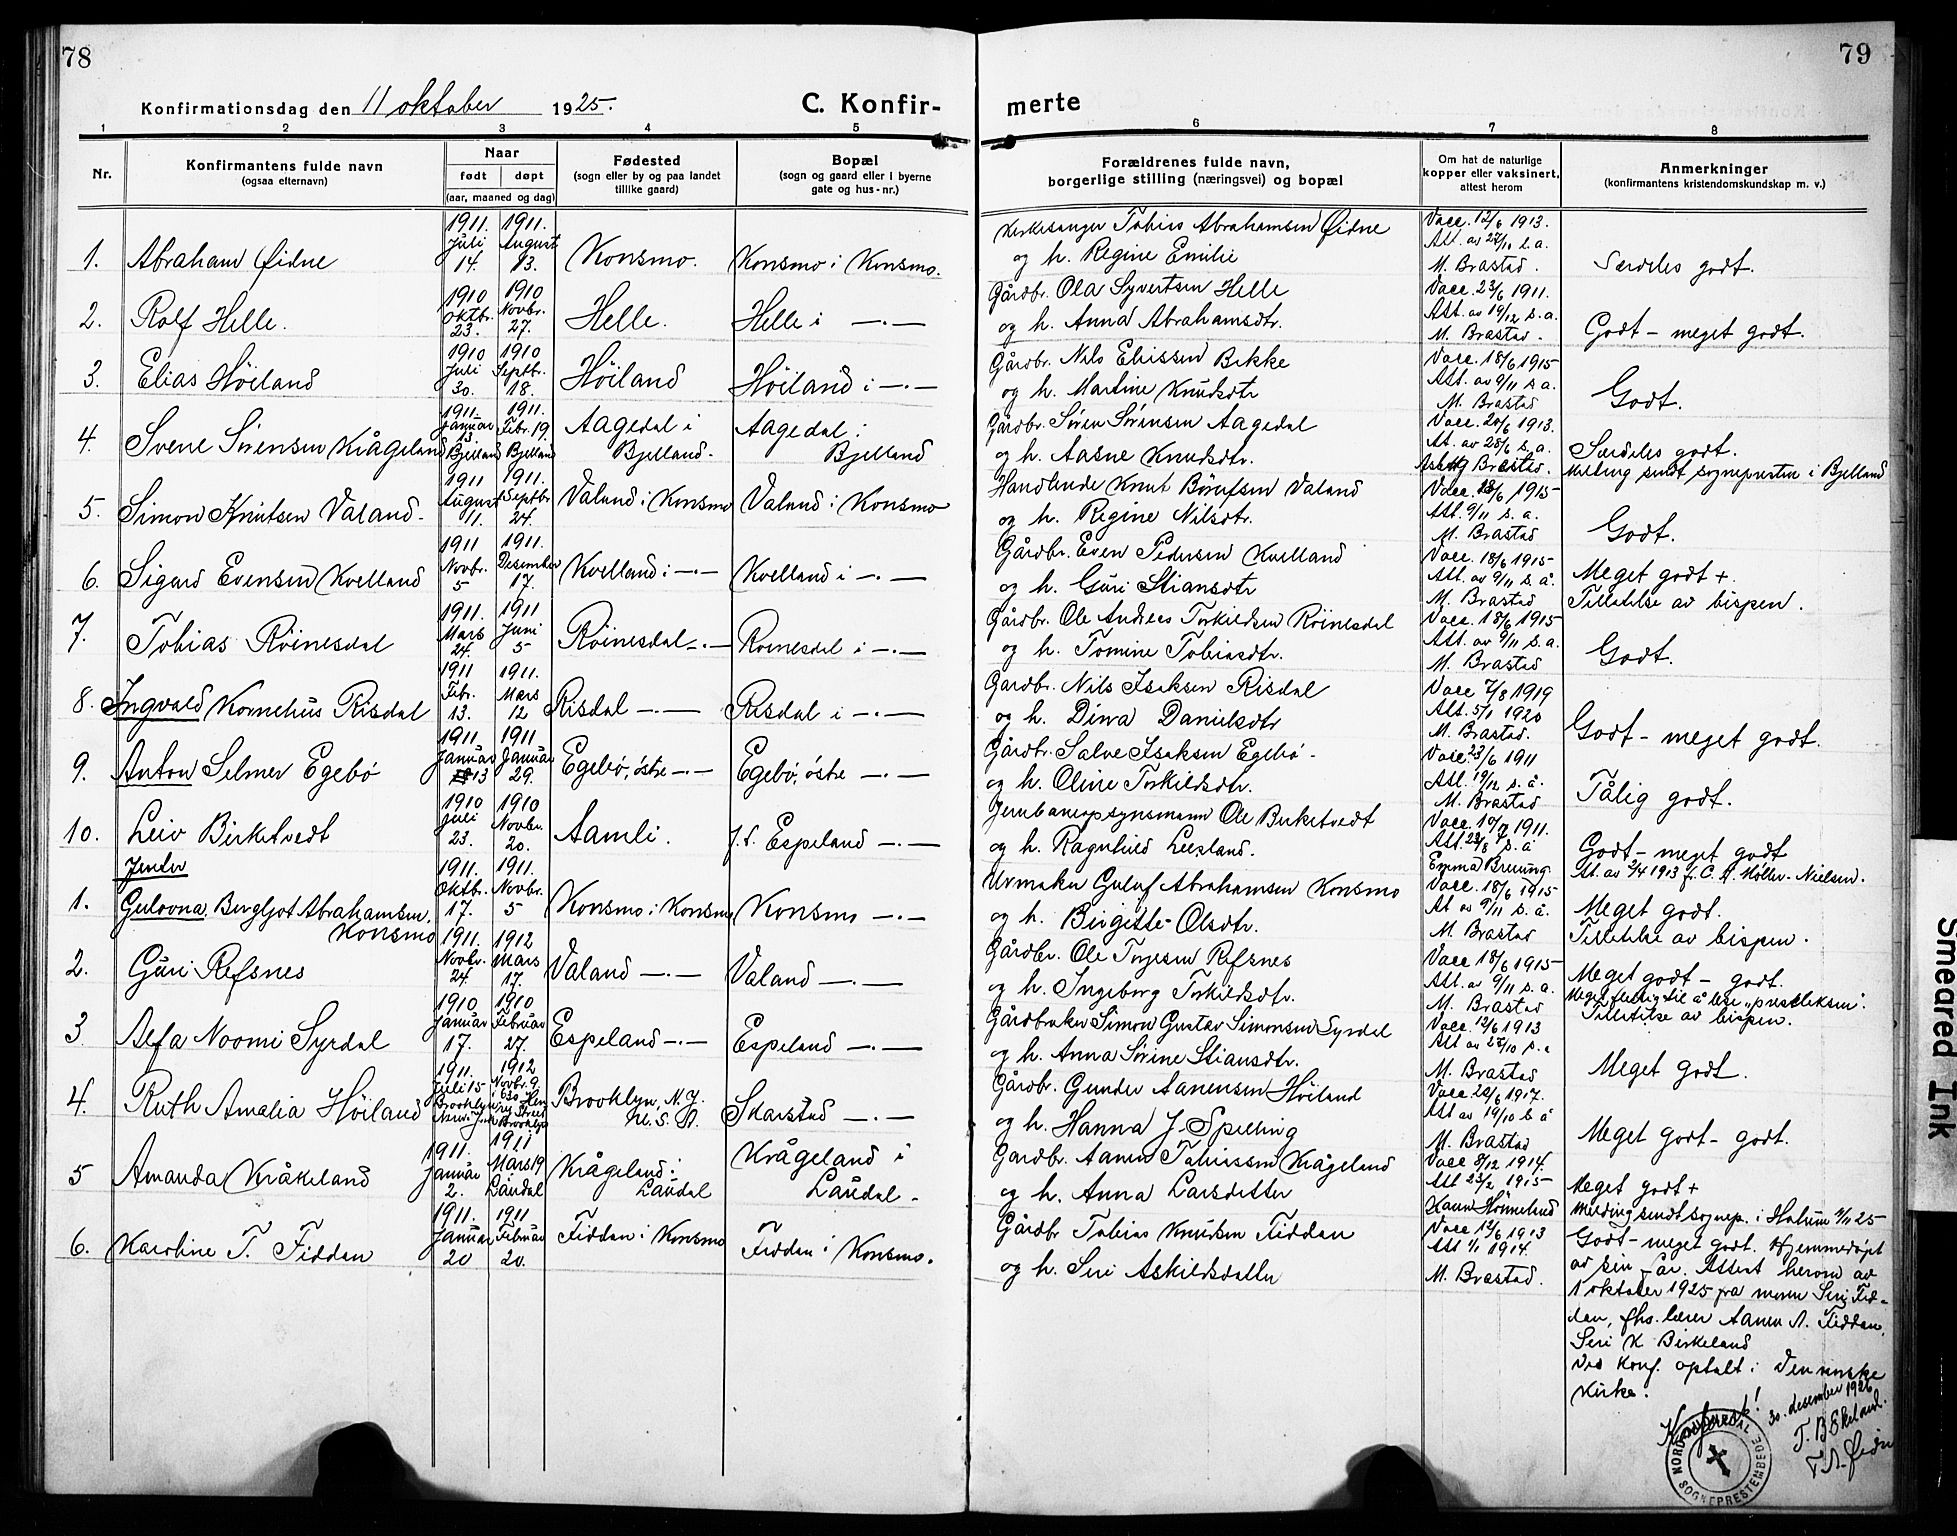 78
79
Konfirmationsdag den 11 oktober 1925.
C. Konfirmerte
1 2 3 4 5 6 7 8
Nr.
Konfirmantens fulde navn
(ogsaa efternavn)
Naar
født døpt
(aar, maaned og dag)
Fødested
(sogn eller by og paa landet
tillike gaard)
Bopæl
(sogn og gaard eller i byerne
gate og hus-nr.)
Forældrenes fulde navn,
borgerlige stilling (næringsvei) og bopæl
Om hat de naturlige
kopper eller vaksinert,
attest herom
Anmerkninger
(konfirmantens kristendomskundskap m. v.)
1. Abraham Øidne 1911. Juli 14. 1911. August 13. Konsmo. Konsmo i Konsmo. Kirkesanger Tobias Abrahamsen Øidne og h. Regine Emilie Vacc. 12/6 1913. Att. av 27/11 s. a. M. Brastad. Særdeles godt.
2. Rolf Helle. 1910 Oktbr. 23. 1910 Novbr. 27. Helle. Helle i —·— Gårdbr. Ola Syvertsen Helle og h. Anna Abrahamsdtr. Vacc. 23/6 1911. Att. av 19/12 s. a. M. Brastad. Godt - meget godt.
3. Elias Höiland 1910 Juli 30. 1910 Septbr. 18. Höiland Höiland i —·— Gårdbr. Nils Eliassen Bekke og h. Martine Knudsdtr Vacc. 18/6 1915 Att. av 9/11 s. a. M. Brastad Godt.
4. Svene Sørensen Krågeland 1911. Januar 13 Bjelland 1911. Febr. 19. Bjelland Aagedal i Bjelland. Aagedal i Bjelland Gårdbr. Søren Sørensen Aagedal og h. Aasne Knudsdtr. Vacc. 20/6 1913. At. av 28/6 s. a. Brastad. Særdeles godt. Melding sendt sognepresten i Bjelland
5. Simon Knutsen Valand. 1911 August 11. 1911. Septbr 24. Valand i Konsmo Valand i Konsmo Handlende Knut Börufsen Valand og h. Regine Nilsdtr. Vacc. 18/6 1915 Att. 9/11 s. a. M. Brastad Godt.
6. Sigurd Evensen Kvelland 1911 Novbr. 5 1911. Desember 17. Kvelland i —·— Kvelland i —·— Gårdbr. Even Pedersen Kvelland og h. Guri Stiansdtr Vacc. 18/6 1915 Att. av 9/11 s. å. M. Brastad Meget godt +. Tilladelse av bispen.
7. Tobias Röinesdal 1911. Mars 24. 1911 Juni 5 Röinesdal —·— Roinesdal i —·— Gårdbr. Ole Andreas Torkildsen Röinesdal og h. Tomine Tobiasdtr. Vacc. 18/6 1915 Att. av 9/11 s. a. M. Brastad Godt.
8. Ingvald Kornelius Risdal 1911 Febr. 13. 1911. Mars 12 Risdal —·— Risdal i —·— Gardbr. Nils Isaksen Risdal og h. Dina Danielsdtr Vacc 7/8 1919 Att. 5/1 1920 M. Brastad. Godt - meget godt.
9. Anton Selmer Egebö 1911. Januar 13 1911 Januar 29. Egebö, östre —·— Egebö, östre —·— Gårdbr. Salve Isaksen Egebö. og h. Oline Torkildsdtr. Vacc. 23/6 1911 Att. 19/12 s. å. M. Brastad Tålig godt.
10. Leiv Birketvedt 1910 Juli 23. 1910 Novbr. 20. Aamli. J. s. Espeland —·— Jernbaneopsynsmann Ole Birketvedt og h. Ragnhild Leesland. Vacc. 1911. Att. s. å Emma Breuning. Godt - meget godt At. av 2/4 1913 f. C. A. Möller-Nielsen.
Jenter
1. Gulovna Bergljot Abrahamsen Konsmo 1911. Oktbr. 17. 1911. Novbr. 5 Konsmo i Konsmo Konsmo —·— Urmaker Guluf Abrahamsen Konsmo og h. Birgitte Olsdtr. Vacc. 18/6 1915 At av 9/11 s. å. M. Brastad Meget godt. Tilladelse av bispen.
2. Guri Refsnes 1911. Novbr. 24. 1912 Mars 17. Valand —·— Valand —·— Gårdbr. Ole Torjesen Refsnes og h. Ingeborg Torkildsdtr. Vacc 18/6 1915 Att. av 9/11 s. a. M. Brastad Meget godt - godt. Meget flittig til å lese Tilladelse av bispen.
3. Alfa Noomi Syrdal 1910 Januar 17. 1910 Februar 27. Espeland —·— Espeland —·— Gårdbruker Simon Gustav Simonsen Syrdal og h. Anna Sörine Stiansdtr. Vacc. 12/6 1913 Att av 27/10 s. a M. Brastad Meget godt.
4. Ruth Amalia Höiland 1911. Juli 15 Brooklyn New York 1912 Novbr. 9. i 630 Henry Street Brooklyn Brooklyn, N. Y. U. S. A. Skarstad —·— Gårdbr. Gunder Aanensen Höiland og h. Hanna J. Spelling Vacc. 20/6 1917. Att av 19/10 s. å M. Brastad Meget godt - godt.
5 Amanda Kråkeland 1911. Januar 2. 1911 Mars 19 Laudal Krågeland i Laudal Krågeland i Laudal. Gardbr. Aanen Tobiassen Krågeland og h. Anna Larsdatter Vacc 8/12 1914. Att 23/2 1915 Hönneland Meget godt + Melding sendt sognep. i Halum 3/11 25
6. Karoline T. Fiddan 1911. Januar 20 1911 Februar 20. Fiddan i Konsmo Fiddan i Konsmo. Gårdbr Tobias Knutsen Fiddan og h. Seri Askildsdatter Vacc 12/6 1913 Att 1/1 1914. M. Brastad. Godt - meget godt. Hjemmedöpt
av sin far. Attest herom av
1 oktober 1925 fra moren Seri Fid-
dan, fhs. lærer Aanen A. Fiddan,
Seri K Birkeland
Ved konf. optatt i Den norske
kirke.
Konferert!
30. desember 1926
T. B. Ekeland.
T. A. Øidne
NORD-AUDNEDAL SOGNEPRESTEMBEDE
Smeared Ink